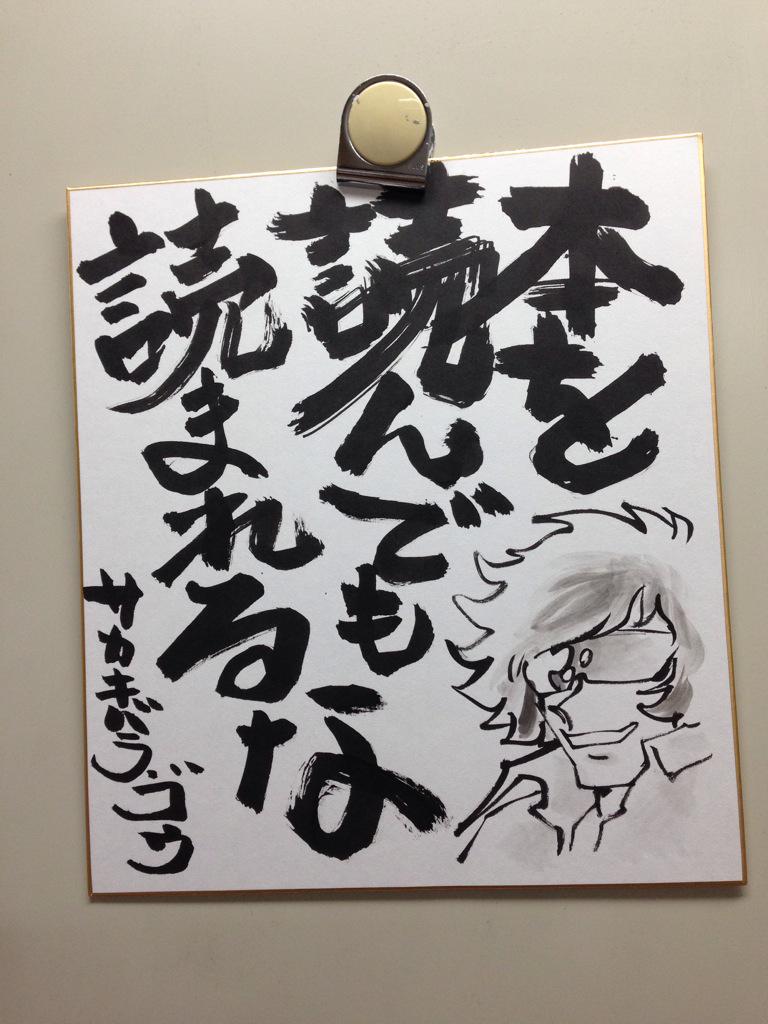 本を
読んでも
読まれるな
サカキバラ・ゴウ